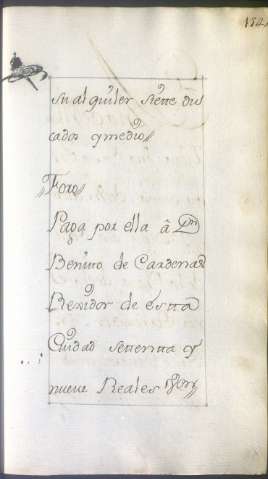 154
su alquiler siette du
cados y medio//
//Foro//
Paga por ella â Dn
Benito de Cardenas
Rexidor de estta
Ciudad settentta y
nueve Reales